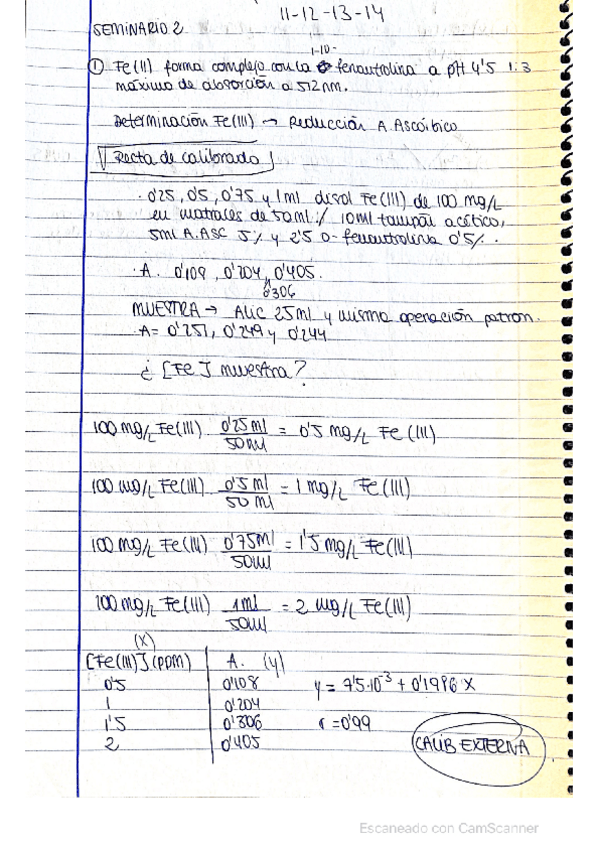 11-12-13-14
SEMINARIO 2
1-10-
① Fe(II) forma complejo con la fenantrolina a pH 4'5 1:3
máximo de absorción a 512 nm.
Determinación Fe(III) → Reducción A. Ascórbico
Recta de calibrado
· 0'25, 0'5, 0'75 y 1 ml disol Fe(III) de 100 mg/L
en matraces de 50 ml / 10 ml tampón acético,
5 ml A.ASC 5% y 2'5 o-fenantrolina 0'5%.
· A. 0'109, 0'204, 0'405.
0'306
MUESTRA → Alic 25 ml y misma operación patrón.
· A = 0'251, 0'249 y 0'244
¿[Fe] muestra?
100 mg/L Fe(III) 0'25 ml / 50 ml = 0'5 mg/L Fe(III)
100 mg/L Fe(III) 0'5 ml / 50 ml = 1 mg/L Fe(III)
100 mg/L Fe(III) 0'75 ml / 50 ml = 1'5 mg/L Fe(III)
100 mg/L Fe(III) 1 ml / 50 ml = 2 mg/L Fe(III)
(X)
[Fe(III)] (PPM) A. (y)
0'5 0'108 y = 7'5·10⁻³ + 0'1986 X
1 0'204
1'5 0'306 r = 0'99
2 0'405 CALIB EXTERNA
Escaneado con CamScanner